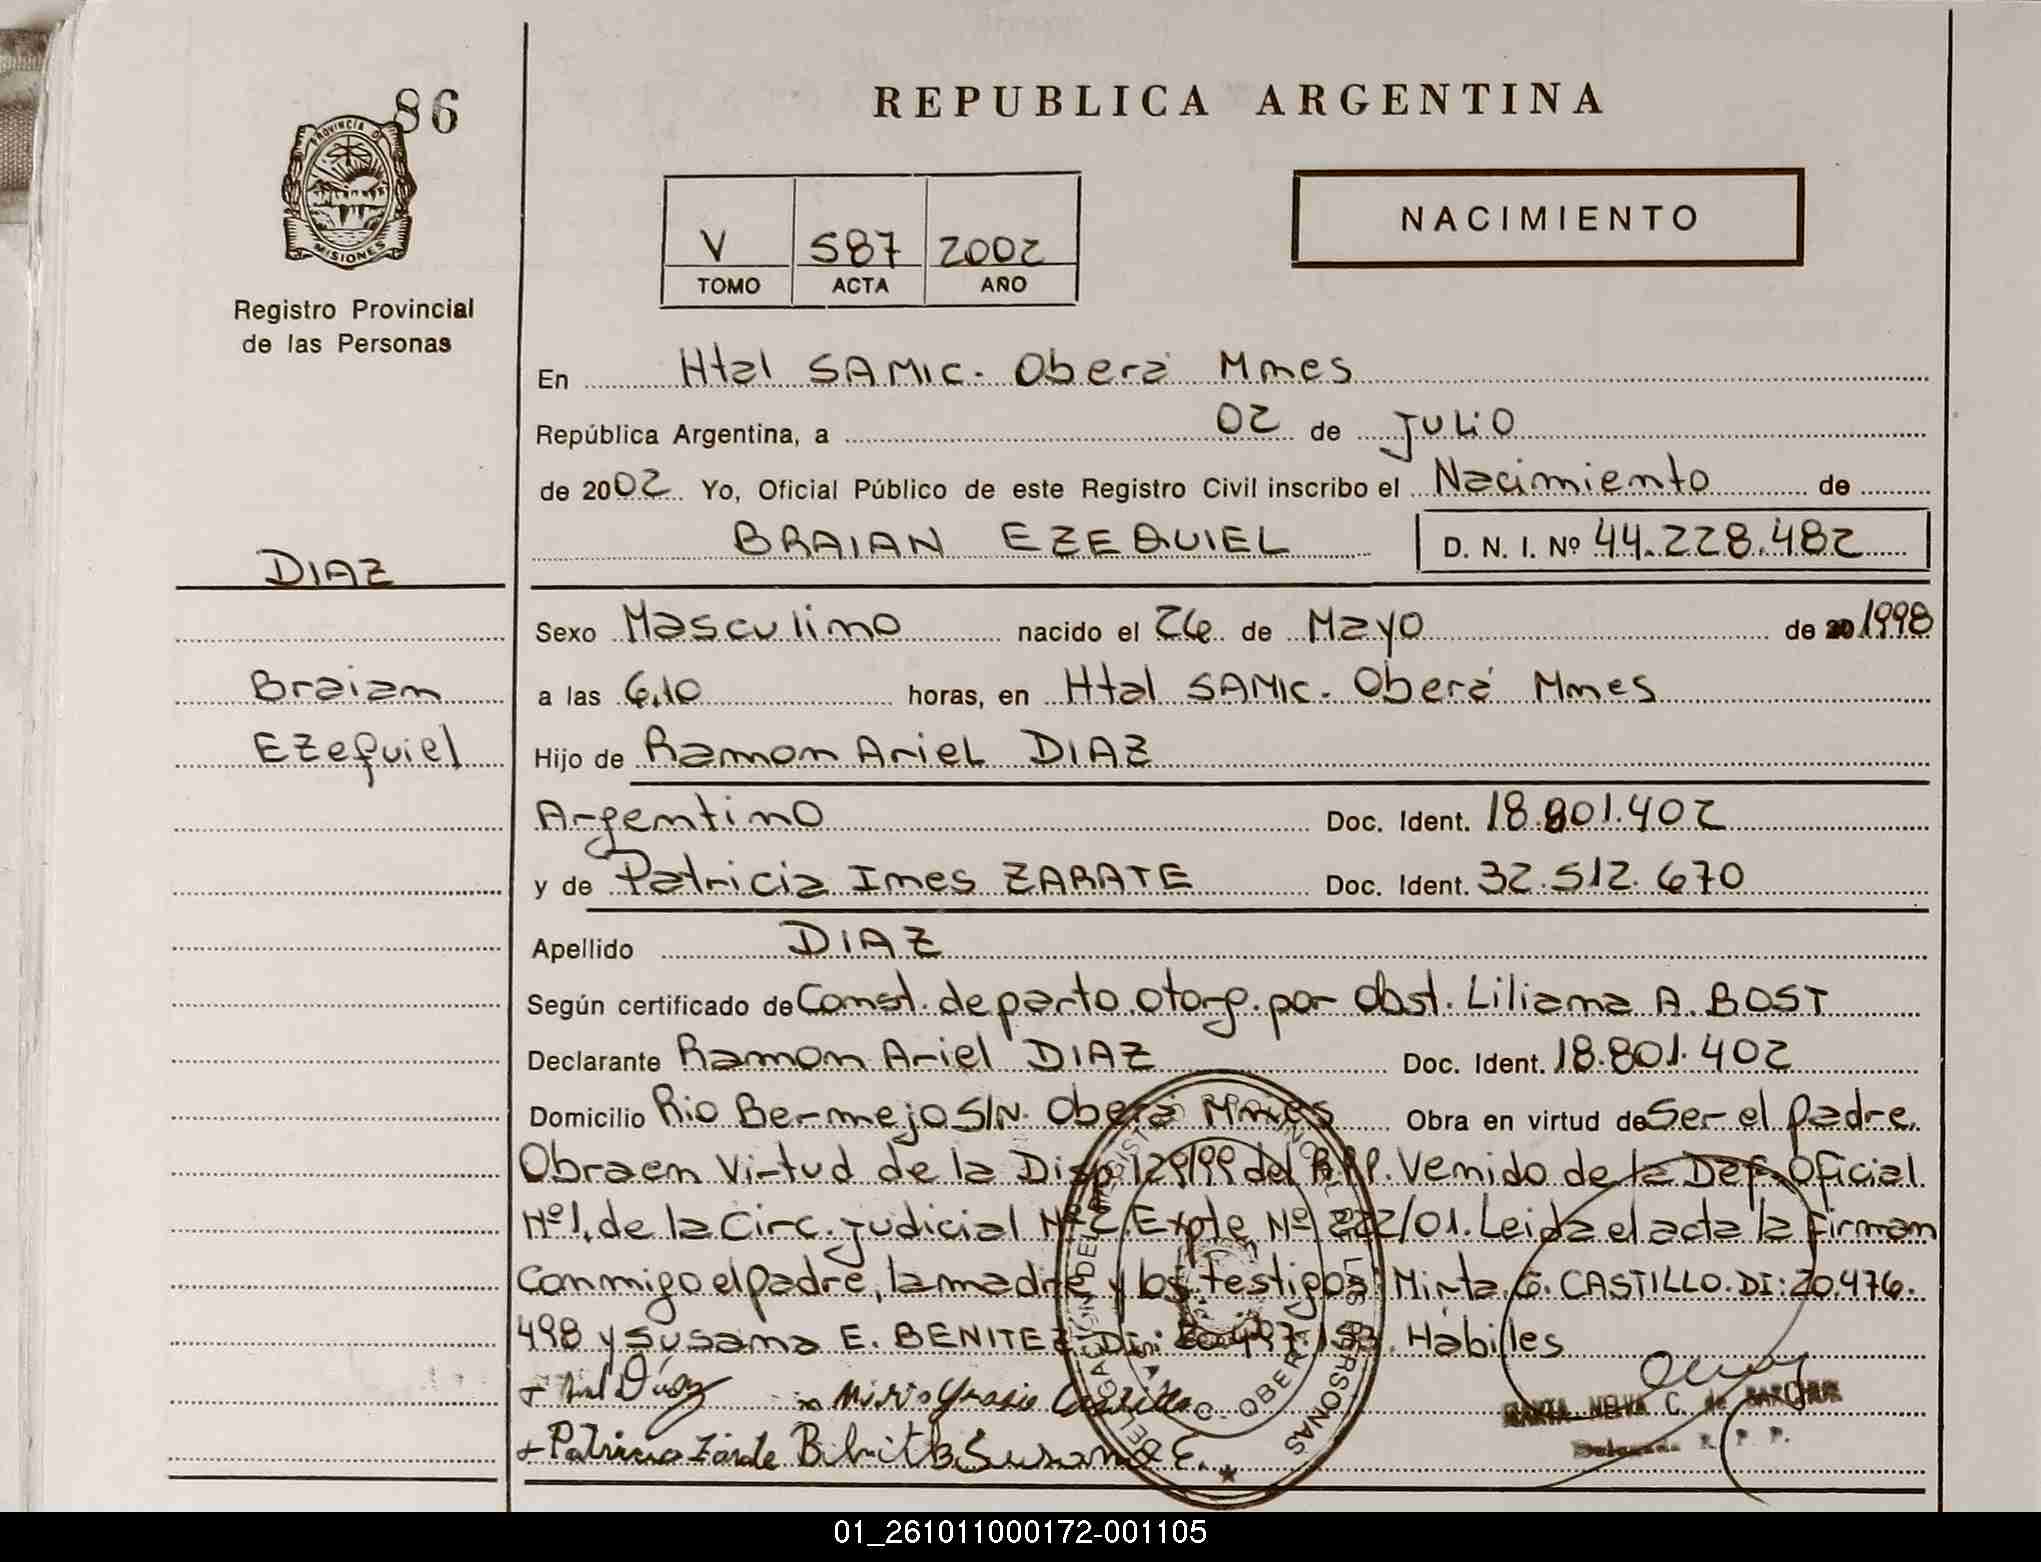 86
PROVINCIA DE
MISIONES
Registro Provincial
de las Personas
REPUBLICA ARGENTINA
V 587 2002
TOMO ACTA AÑO
NACIMIENTO
En Htal SAMIC. Oberá Mnes
República Argentina, a 02 de Julio
de 2002 Yo, Oficial Público de este Registro Civil inscribo el Nacimiento de
BRAIAN EZEQUIEL D. N. I. Nº 44.228.482
DIAZ
Braian
Ezequiel
Sexo Masculino nacido el 26 de Mayo de 1998
a las 6,10 horas, en Htal SAMIC. Oberá Mnes
Hijo de Ramon Ariel DIAZ
Argentino Doc. Ident. 18.801.402
y de Patricia Ines ZARATE Doc. Ident. 32.512.670
Apellido DIAZ
Según certificado de Const. de parto otorg. por Obst. Liliana A. BOST
Declarante Ramon Ariel DIAZ Doc. Ident. 18.801.402
Domicilio Rio Bermejo S/N. Oberá Mnes Obra en virtud de Ser el padre.
Obra en Virtud de la Disp. 129/99 del R.P.P. Venido de la Def. Oficial
Nº1, de la Circ. Judicial Nº2. Expte Nº 222/01. Leida el acta la firman
conmigo el padre, la madre y los testigos: Mirta G. CASTILLO. DI: 20.476.
498 y Susana E. BENITEZ Habiles
Díaz
Patricia Susana E.
C. de
R. P. P.
DELEGACIÓN DEL REGISTRO PROVINCIAL DE LAS PERSONAS
OBERA
01_261011000172-001105